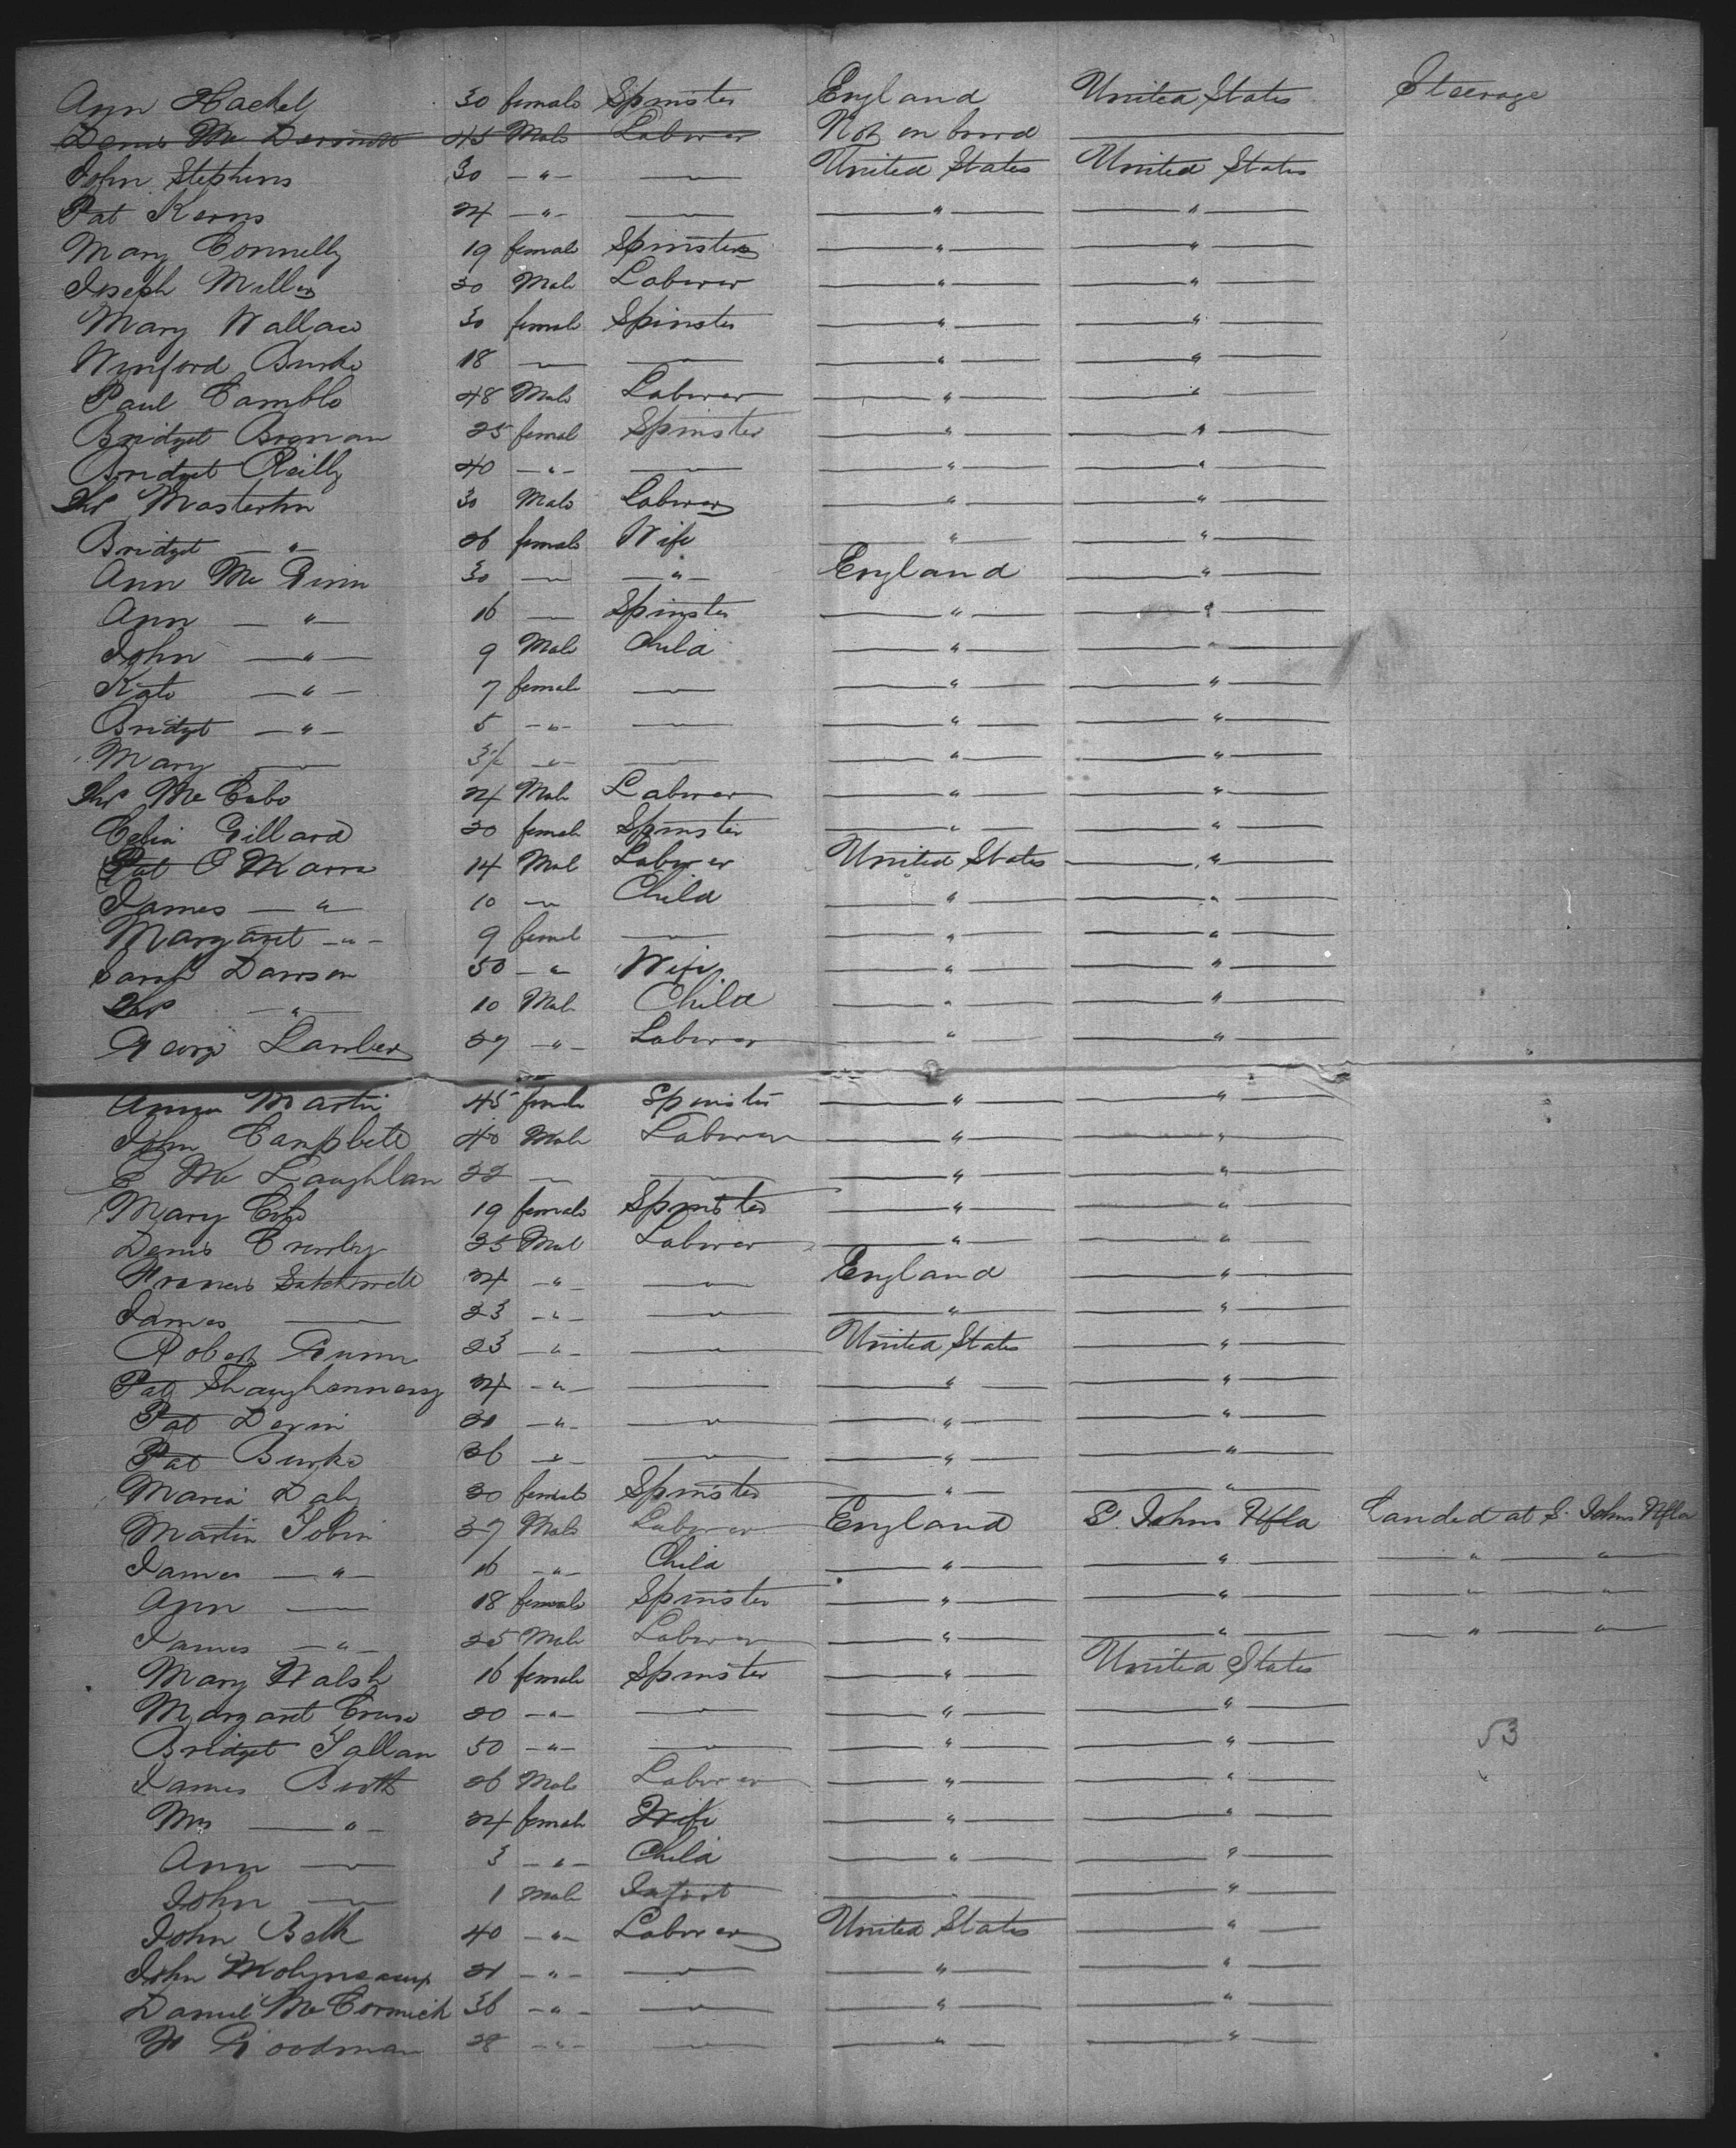 Ann Hackel 30 female Spinster England United States Steerage
Denis Mc Dermott 45 Male Laborer Not on board
John Stephens 30 — " — — " — United States United States
Pat Kerns 24 — " — — " — — " — — " —
Mary Connelly 19 female Spinster — " — — " —
Joseph Miller 30 Male Laborer — " — — " —
Mary Wallace 30 female Spinster — " — — " —
Winford Burke 18 — " — — " — — " — — " —
Paul Camblo 48 Male Laborer — " — — " —
Bridget Brenan 25 femal Spinster — " — — " —
Bridget Reilly 40 — " — — " — — " — — " —
Ths Masterton 30 Male Laborer — " — — " —
Bridget — " — 26 female Wife — " — — " —
Ann Mc Ginn 30 — " — — " — England — " —
Ann — " — 16 — " — Spinster — " — — " —
John — " — 9 Male Child — " — — " —
Kate — " — 7 female — " — — " — — " —
Bridget — " — 5 — " — — " — — " — — " —
Mary — " — — " — — " — — " — — " —
Ths Mc Cabe 24 Male Laborer — " — — " —
Celia Gillard 20 female Spinster — " — — " —
Pat O Marra 14 Mal Laborer United States — " —
James — " — 10 — " — Child — " — — " —
Margaret — " — 9 femal — " — — " — — " —
Sarah Dawson 50 — " — Wife — " — — " —
Ths — " — 10 Male Child — " — — " —
George Lamber 27 — " — Laborer — " — — " —
Martin 45 female Spinster — " — — " —
John Campbell 40 Male Laborer — " — — " —
E Mc Laughlan 22 — " — — " — — " — — " —
Mary 19 female Spinster — " — — " —
Denis Crowley 25 Mal Laborer — " — — " —
Francis Satchwell 24 — " — — " — England — " —
James — " — 23 — " — — " — — " — — " —
Robert Gunn 23 — " — — " — United States — " —
Pat Shaughennesy 24 — " — — " — — " — — " —
Pat Devin — " — — " — — " — — " —
Pat Burke 36 — " — — " — — " — — " —
Maria Daly 30 female Spinster — " — — " —
Martin Tobin 37 Male Laborer England S. Johns Nfla Landed at S. Johns Nfla
James — " — 16 — " — Child — " — — " — — " — " —
Ann — " — 18 female Spinster — " — — " — — " — " —
James — " — 25 Male Laborer — " — — " — — " — " —
Mary Walsh 16 female Spinster — " — United States
Margaret Cruse 20 — " — — " — — " — — " —
Bridget Tallan 50 — " — — " — — " — — " — 53
James Butt 26 Male Laborer — " — — " —
Mrs — " — 24 female Wife — " — — " —
Ann — " — 3 — " — Child — " — — " —
John — " — 1 Male Infant — " — — " —
John Belk 40 — " — Laborer United States — " —
John Molyneaux 21 — " — — " — — " — — " —
Daniel Mc Cormick 36 — " — — " — — " — — " —
Goodman 28 — " — — " — — " — — " —